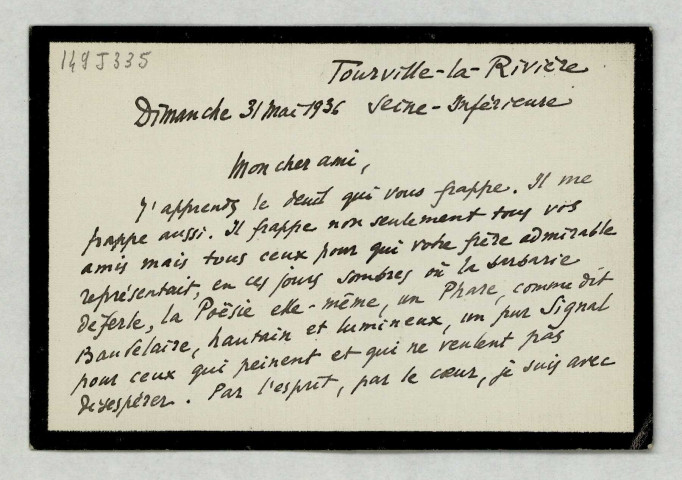 149 J 335
Tourville-la-Rivière
Dimanche 31 Mai 1936 Seine-Inférieure
Mon cher ami,
J'apprends le deuil qui vous frappe. Il me
frappe aussi. Il frappe non seulement tous vos
amis mais tous ceux pour qui votre frère admirable
représentait, en ces jours sombres où la barbarie
déferle, la Poësie elle-même, un Phare, comme dit
Baudelaire, hautain et lumineux, un pur Signal
pour ceux qui peinent et qui ne veulent pas
désespérer. Par l'esprit, par le cœur, je suis avec